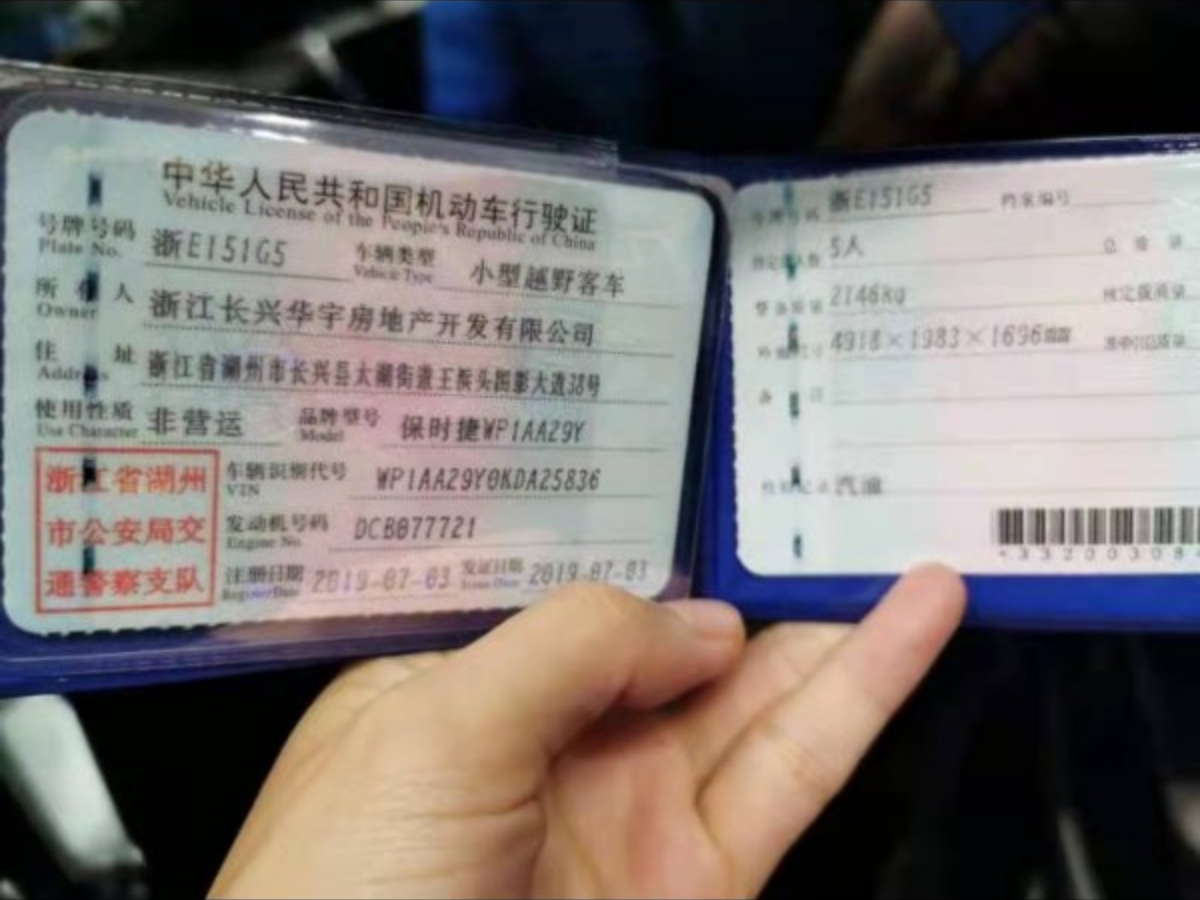 中华人民共和国机动车行驶证
Vehicle License of the People's Republic of China
号牌号码 浙E151G5 车辆类型 小型越野客车
Plate No. Vehicle Type
所有人 浙江长兴华宇房地产开发有限公司
Owner
住址 浙江省湖州市长兴县太湖街道王浜头图影大道38号
Address
使用性质 非营运 品牌型号 保时捷WP1AA29Y
Use Character Model
浙江省湖州
市公安局交
通警察支队
车辆识别代号 WP1AA29Y0KDA25836
VIN
发动机号码 DCB077721
Engine No.
注册日期 2019-07-03 发证日期 2019-07-03
Register Date Issue Date
号牌号码 浙E151G5 档案编号
5人 总质量
整备质量 2146kg 核定载质量
外廓尺寸 4918×1983×1696
备注
汽油